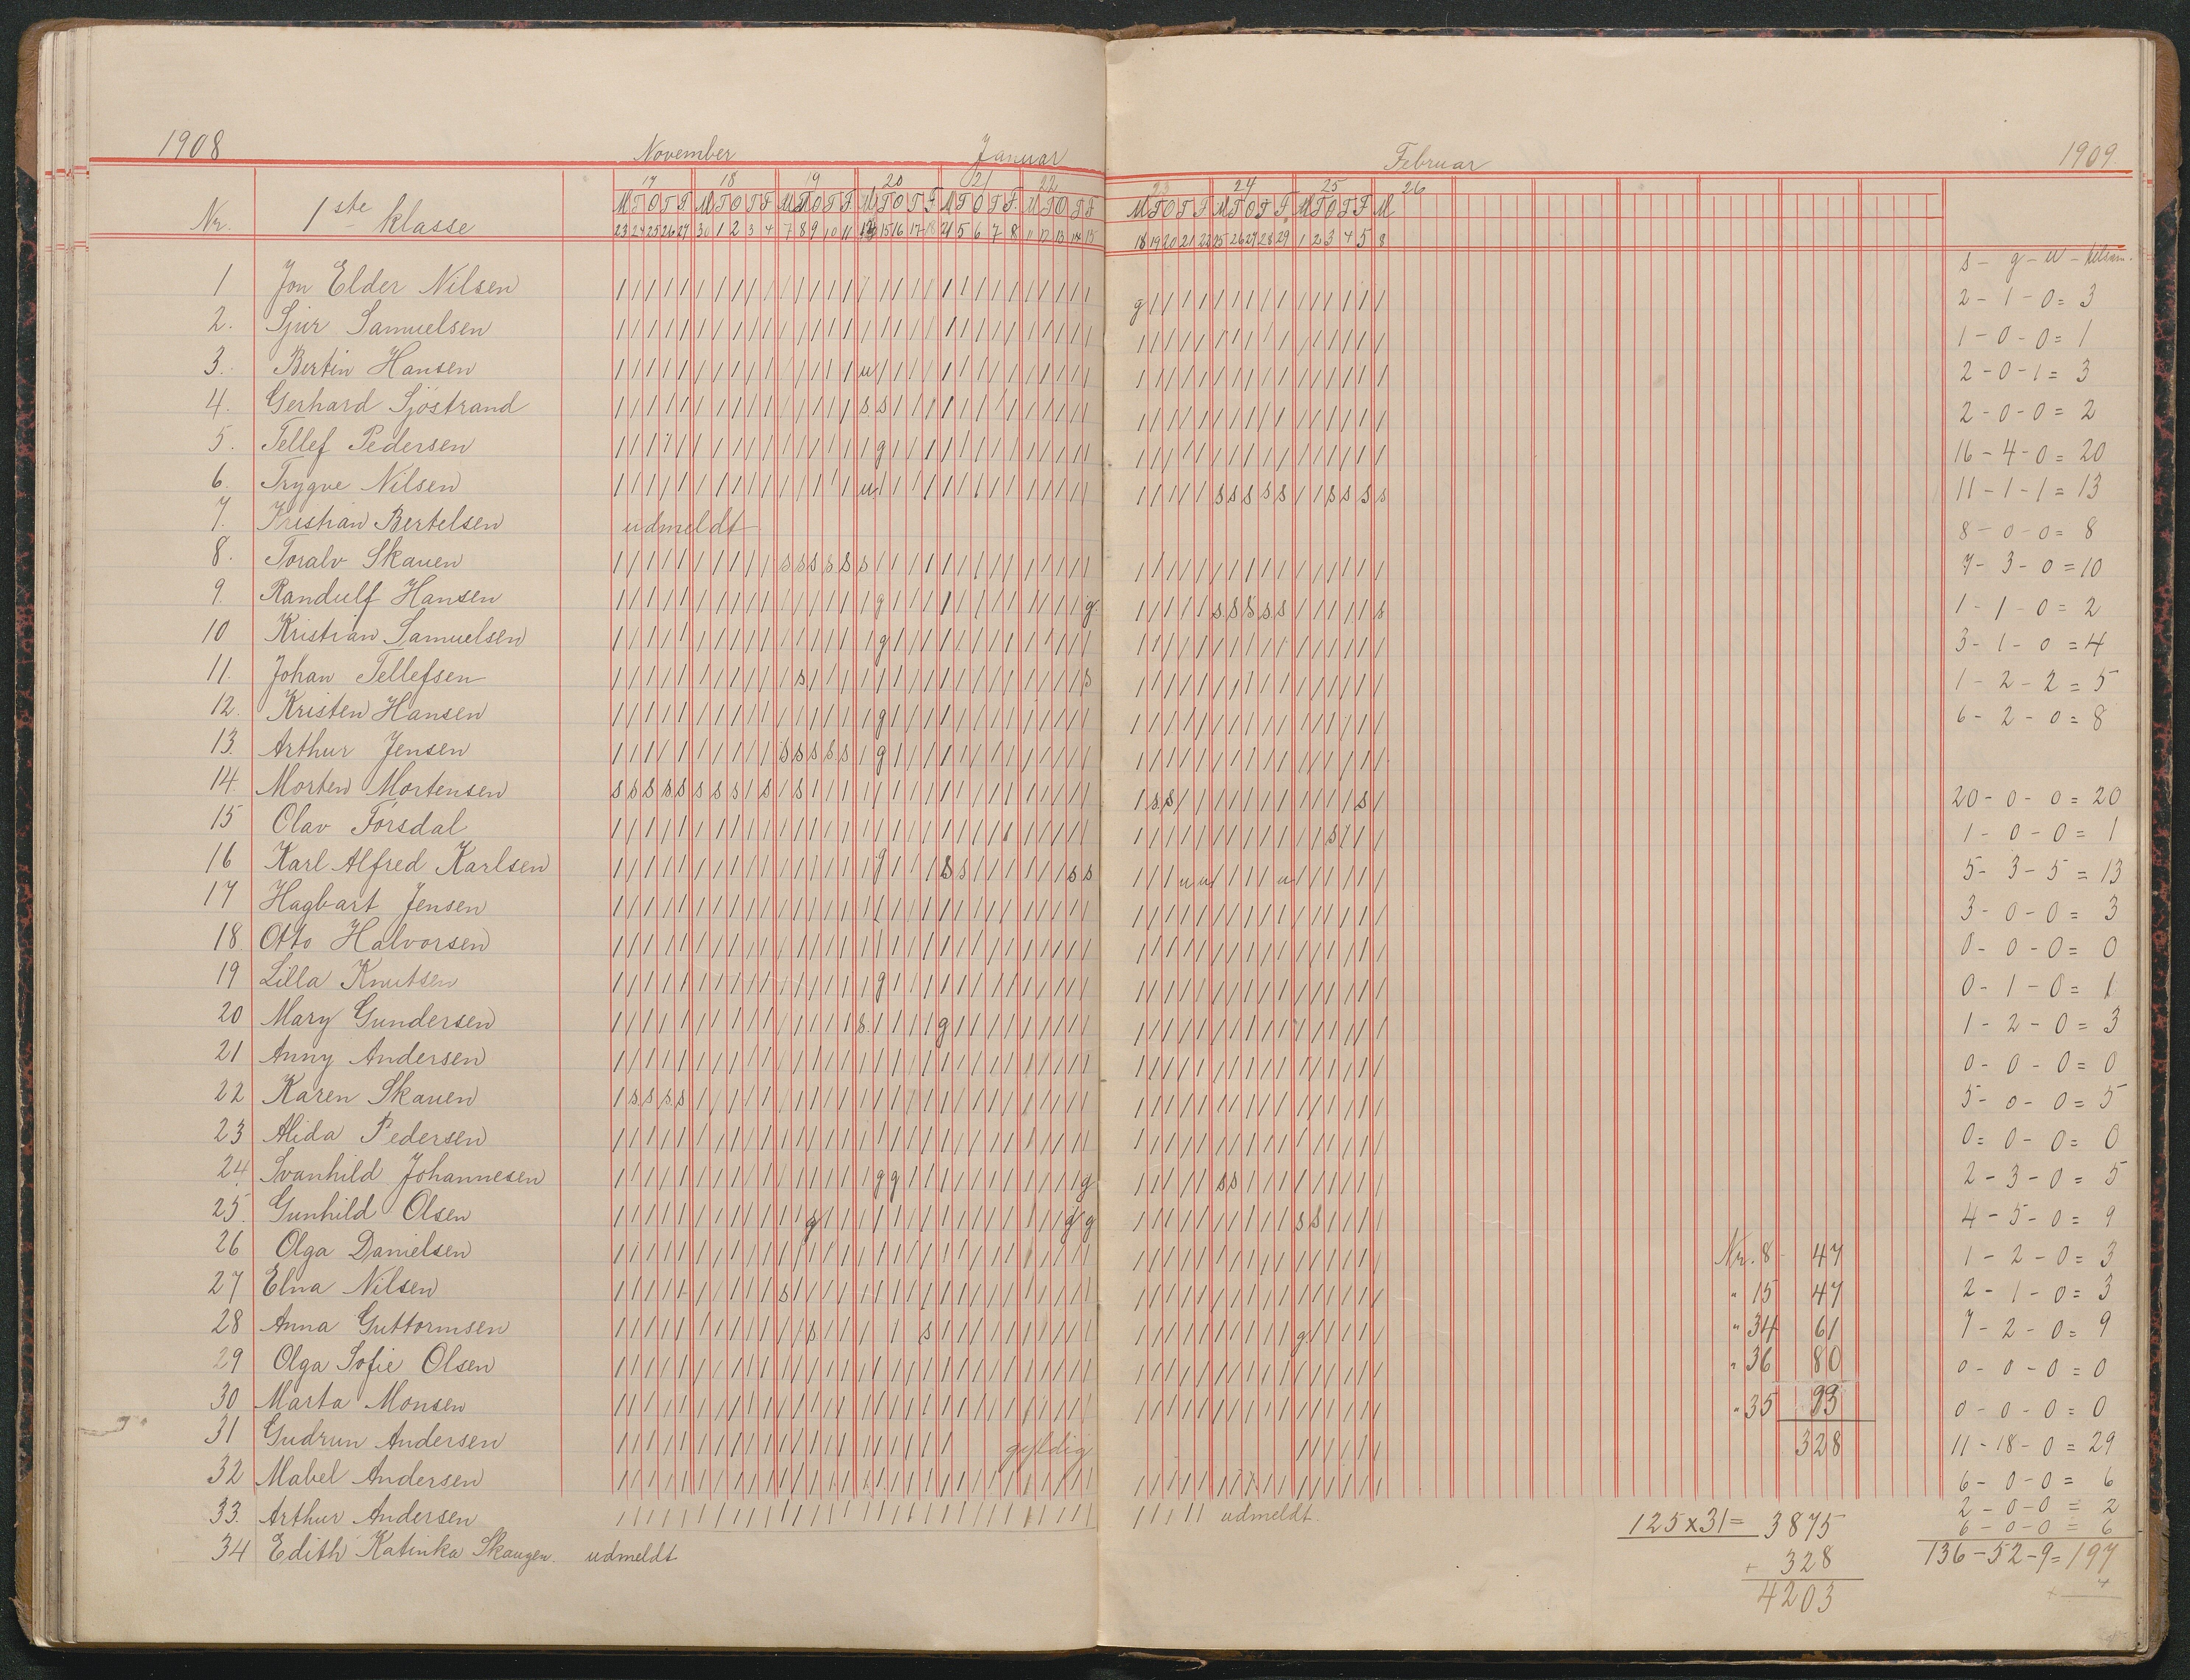 1908 November Januar Februar 1909.
17 18 19 20 21 22 23 24 25 26
Nr. 1ste klasse
M T O T F M T O T F M T O T F M T O T F M T O T F M T O T F M T O T F M T O T F M T O T F M
23 24 25 26 27 30 1 2 3 4 7 8 9 10 11 15 16 17 18 5 6 7 8 11 12 13 14 15 18 19 20 21 22 25 26 27 28 29 1 2 3 4 5 8
s - g - u -
1 Jon Elder Nilsen g 2 - 1 - 0 = 3
2. Sjur Samuelsen 1 - 0 - 0 = 1
3. Bertin Hansen u 2 - 0 - 1 = 3
4. Gerhard Sjöstrand s s 2 - 0 - 0 = 2
5. Tellef Pedersen g 16 - 4 - 0 = 20
6. Trygve Nilsen u s s s s s s s s s 11 - 1 - 1 = 13
7. Kristian Bertelsen udmeldt 8 - 0 - 0 = 8
8. Toralv Skauen s s s s s s 7 - 3 - 0 = 10
9. Randulf Hansen g g. s s s s s s 1 - 1 - 0 = 2
10 Kristian Samuelsen g 3 - 1 - 0 = 4
11. Johan Tellefsen s s 1 - 2 - 2 = 5
12. Kristen Hansen g 6 - 2 - 0 = 8
13. Arthur Jensen s s s s s g
14. Morten Mortensen s s s s s s s s s s s s s 20 - 0 - 0 = 20
15 Olav Torsdal s 1 - 0 - 0 = 1
16 Karl Alfred Karlsen g s s s s u u u 5 - 3 - 5 = 13
17 Hagbart Jensen 3 - 0 - 0 = 3
18 Otto Halvorsen 0 - 0 - 0 = 0
19 Lilla Knutsen g 0 - 1 - 0 = 1
20 Mary Gundersen s. g 1 - 2 - 0 = 3
21 Anny Andersen 0 - 0 - 0 = 0
22 Karen Skauen s s s s 5 - 0 - 0 = 5
23 Alida Pedersen 0 = 0 - 0 = 0
24. Svanhild Johannesen g g g s s 2 - 3 - 0 = 5
25. Gunhild Olsen g g g s s 4 - 5 - 0 = 9
26 Olga Danielsen Nr. 8 - 47 1 - 2 - 0 = 3
27 Elna Nilsen s " 15 47 2 - 1 - 0 = 3
28 Anna Guttormsen s s g " 34 61 7 - 2 - 0 = 9
29 Olga Sofie Olsen " 36 80 0 - 0 - 0 = 0
30 Marta Monsen " 35 93 0 - 0 - 0 = 0
31 Gudrun Andersen gyldig 328 11 - 18 - 0 = 29
32 Mabel Andersen 6 - 0 - 0 = 6
33. Arthur Andersen udmeldt. 2 - 0 - 0 = 2
125 x 31 = 3875 6 - 0 - 0 = 6
34 Edith Katinka Skaugen. udmeldt 136 - 52 - 9 = 197
+ 328
4203